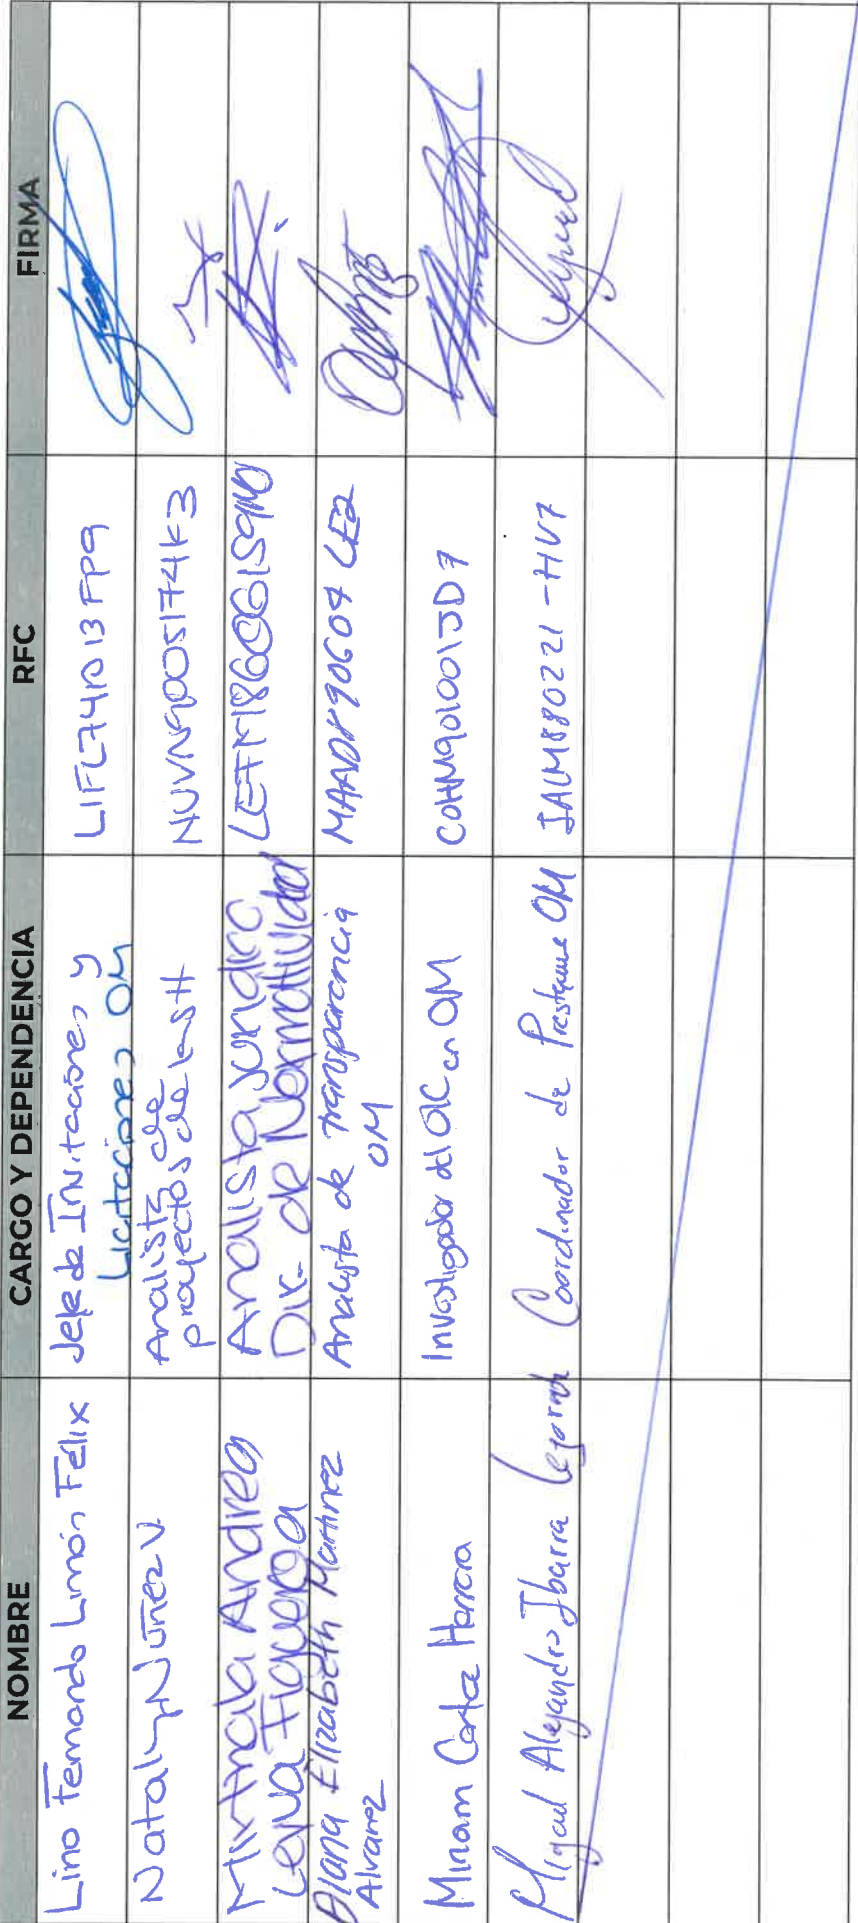 NOMBRE CARGO Y DEPENDENCIA RFC FIRMA
Lino Fernando Limón Félix Jefe de Invitaciones y
Licitaciones OM LIFL741013FP9
Nataly Núñez V. Analista de
proyectos de NUVN9005174K3
Mirthala Andrea
Leyva Figueroa Analista jurídico
Dir. de Normatividad
Diana Elizabeth Martinez
Alvarez Analista de transparencia
OM
Miriam Corta Herrera Investigador del OIC en OM COHM901001JD7
Miguel Alejandro Ibarra Coordinador de OM IALM880221-HV7